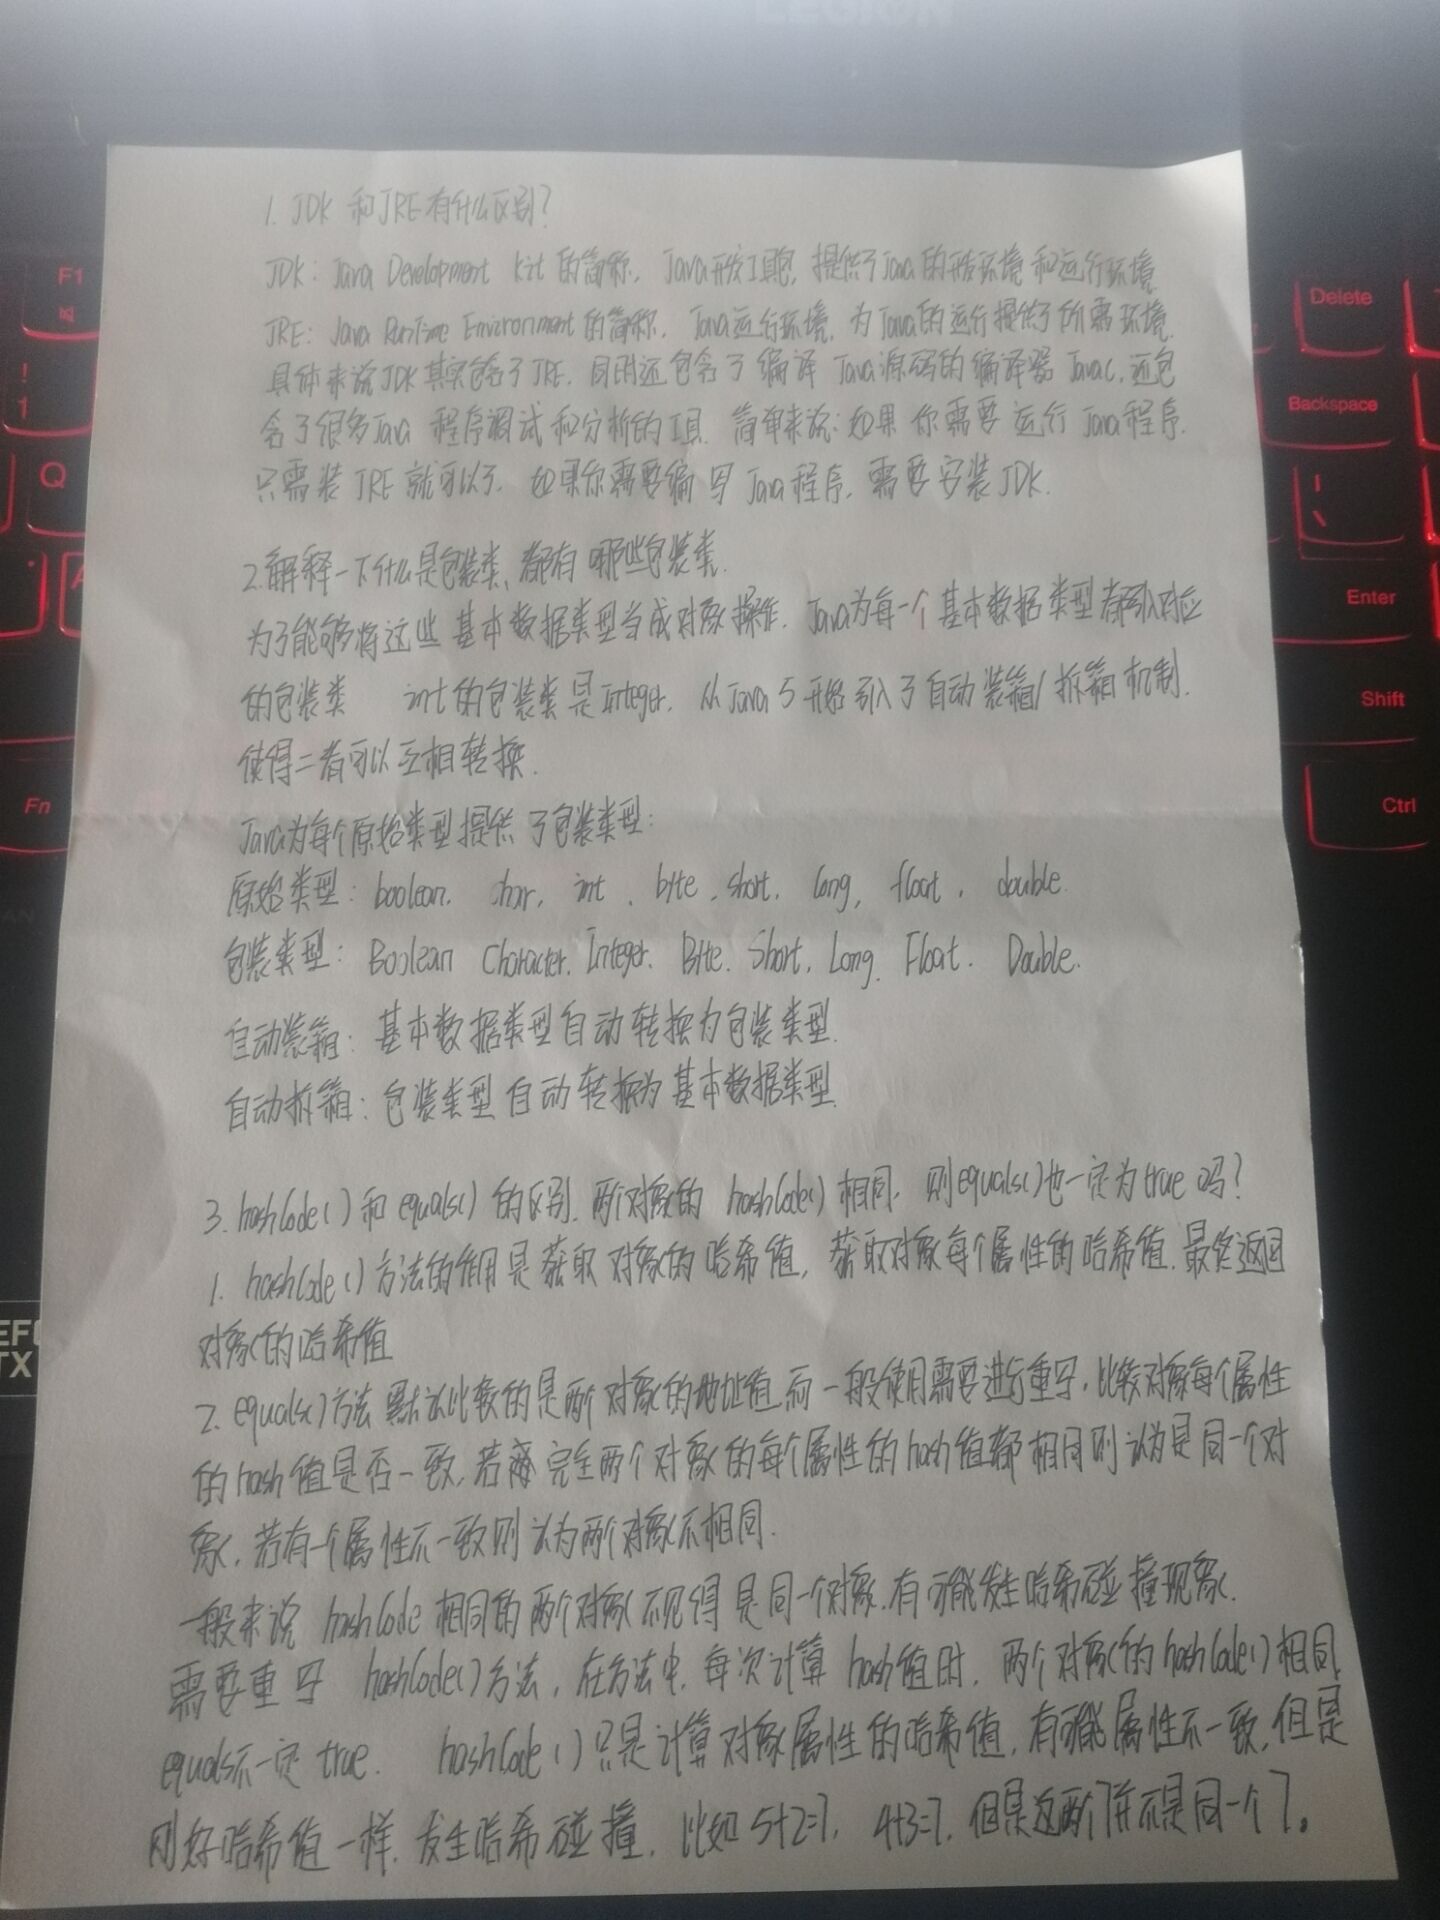 LEGION
F1
Delete
Backspace
Q
Enter
Shift
Fn
Ctrl
1. JDK 和JRE有什么区别?
JDK: Java Development Kit 的简称, Java开发工具包, 提供了Java的开发环境和运行环境.
JRE: Java RunTime Environment的简称, Java运行环境, 为Java的运行提供了所需环境.
具体来说JDK其实包含了JRE, 同时还包含了编译 Java源码的编译器 Javac, 还包
含了很多Java 程序调试和分析的工具. 简单来说:如果你需要运行 Java程序.
只需装JRE就可以了, 如果你需要编写Java程序, 需要安装JDK.
2.解释一下什么是包装类、都有哪些包装类.
为了能够将这些基本数据类型当成对象操作. Java为每一个基本数据类型都引入对应
的包装类 int的包装类是Integer, 从Java 5开始引入了自动装箱/拆箱机制.
使得二者可以互相转换.
Java为每个原始类型提供了包装类型:
原始类型: boolean, char, int, byte, short, long, float, double.
包装类型: Boolean Character, Integer, Byte, Short, Long, Float, Double.
自动装箱: 基本数据类型自动转换为包装类型.
自动拆箱: 包装类型自动转换为基本数据类型.
3. hashCode()和equals()的区别. 两个对象的 hashCode()相同, 则equals()也一定为true吗?
1. hashCode()方法的作用是获取对象的哈希值, 获取对象每个属性的哈希值.最终返回
对象的哈希值
2. equals()方法默认比较的是两个对象的地址值,而一般使用需要进行重写,比较对象每个属性
的hash值是否一致,若 完全两个对象的每个属性的hash值都相同则认为是同一个对
象,若有一个属性不一致则认为两个对象不相同.
一般来说 hashCode相同的两个对象不见得是同一个对象.有可能发生哈希碰撞现象.
需要重写 hashCode()方法, 在方法中, 每次计算hash值时, 两个对象的hashCode()相同,
equals不一定true. hashCode()只是计算对象属性的哈希值, 有可能属性不一致,但是
刚好哈希值一样.发生哈希碰撞, 比如5+2=7, 4+3=7, 但是这两个7并不是同一个7。